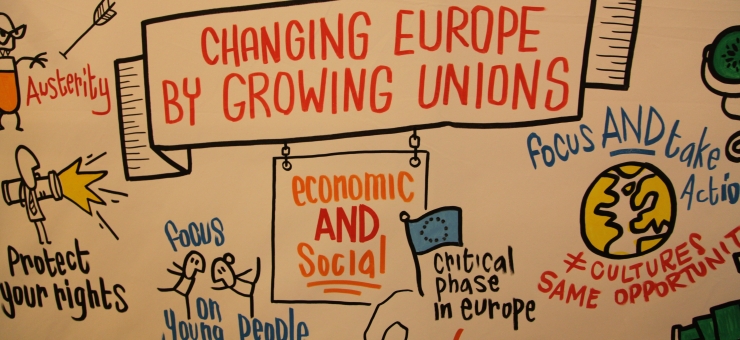 CHANGING EUROPE
BY GROWING UNIONS
Austerity
economic
AND
Social
focus AND take
Action
Protect
your rights
focus
on
Young People
critical
phase
in europe
≠ CULTURES
SAME OPPORTUNIT